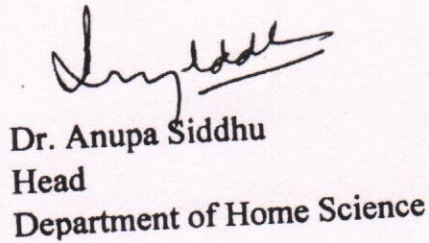 Dr. Anupa Siddhu
Head
Department of Home Science